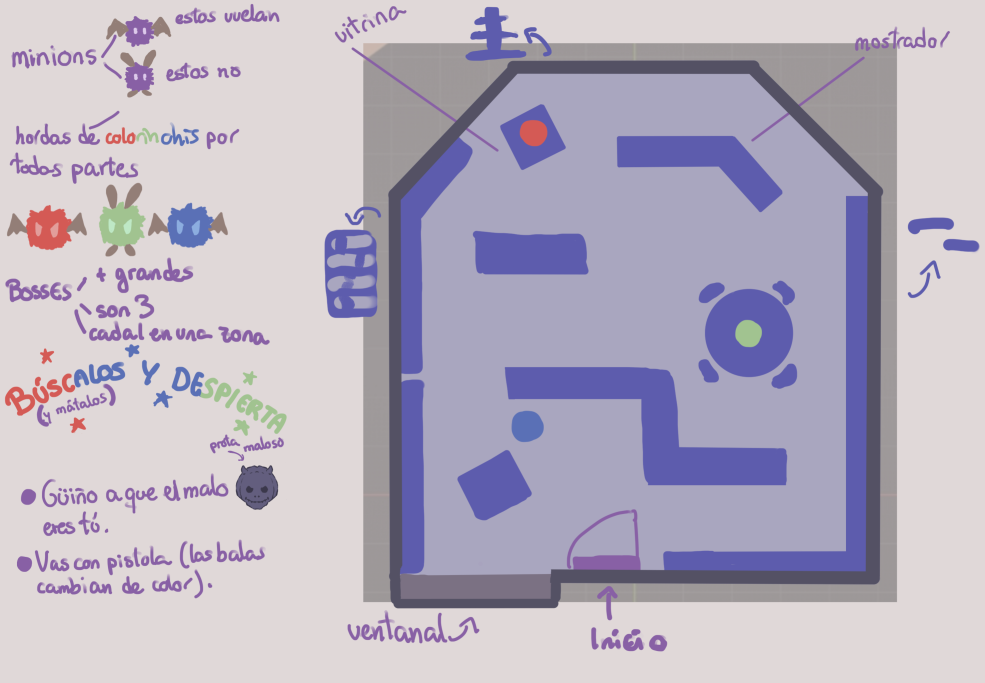 estos vuelan
minions
estos no
hordas de colorinchis por
todas partes
Bosses
+ grandes
son 3
cada1 en una zona
BÚSCALOS Y DESPIERTA
(y mátalos)
prota maloso
Güiño a que el malo
eres tú.
Vas con pistola (las balas
cambian de color).
vitrina
mostrador
ventanal
Inicio